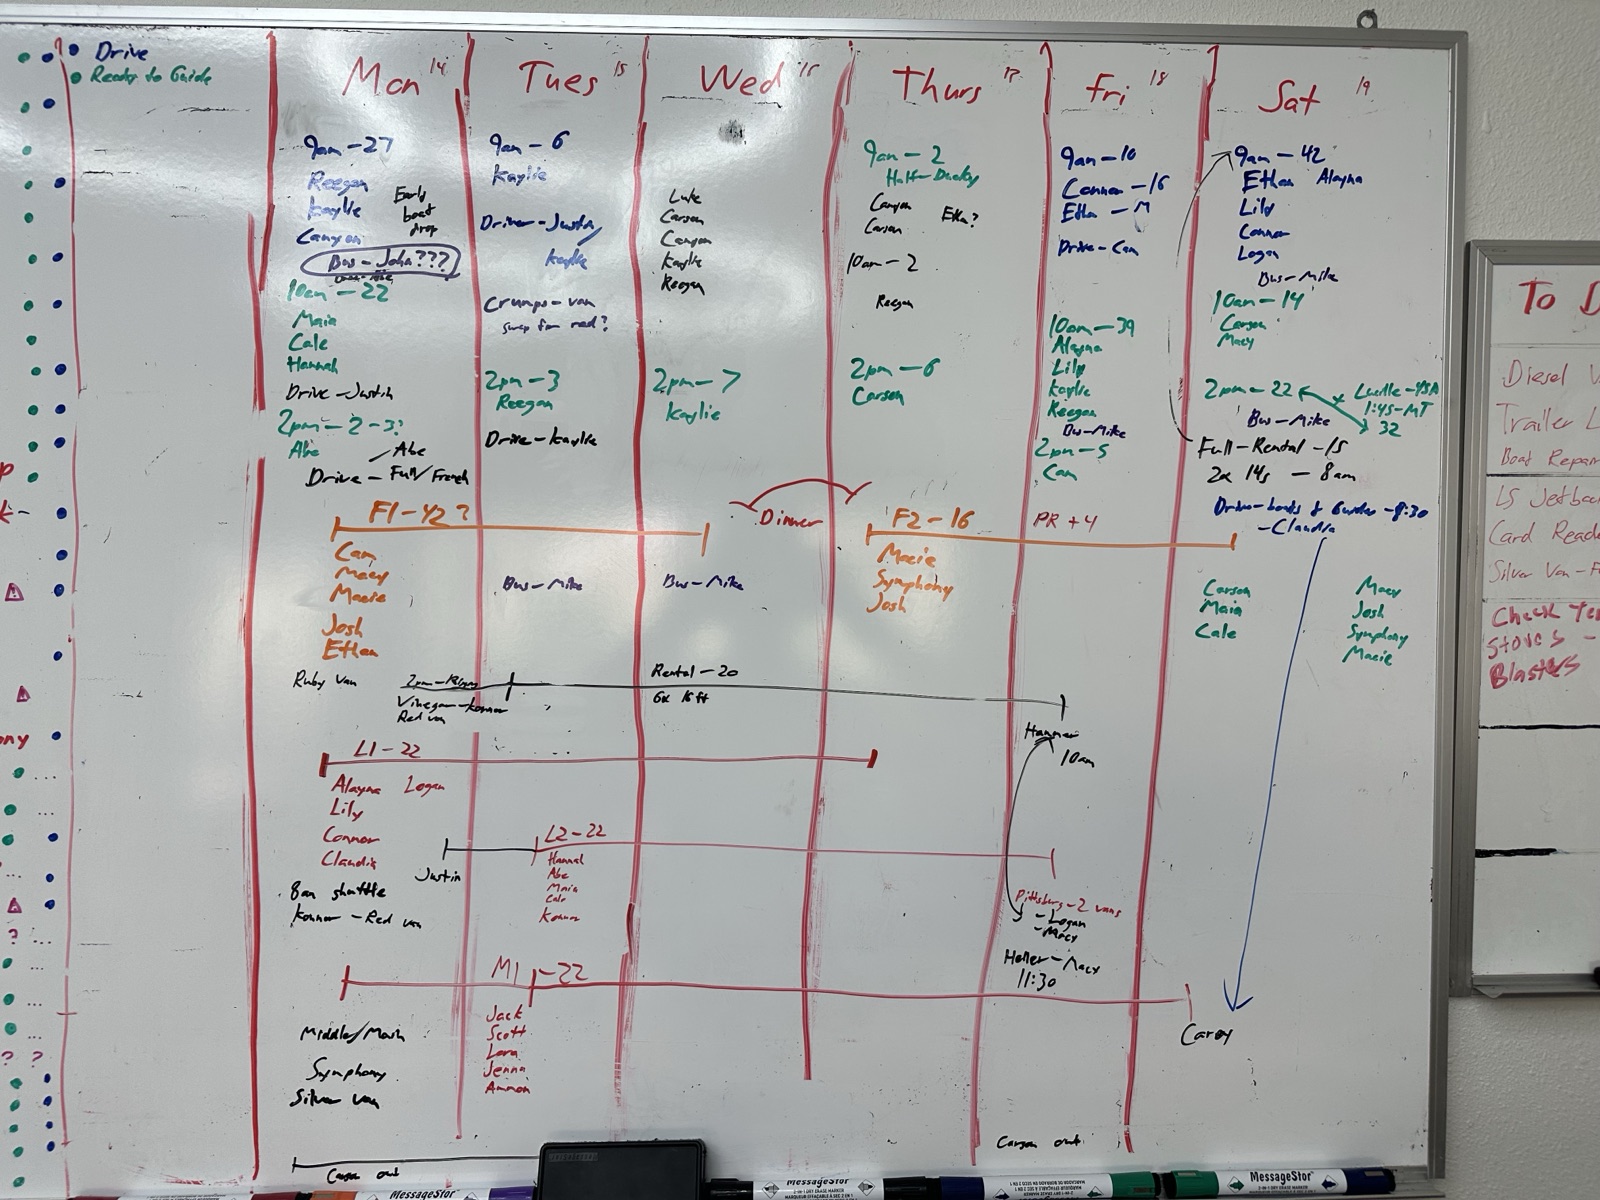 Drive
Ready to Guide
Mon 14
9am - 27
Reegan
Kaylie
Canyon
Early
boat
drop
Bus - John???
10am - 22
Maia
Cale
Hannah
Drive - Justin
2pm - 2-3?
Abe
Abe
Drive - Full/French
Tues 15
9am - 6
Kaylie
Driver - Justin
Kaylie
Crumps - van
swap for red?
2pm - 3
Reegan
Drive - Kaylie
Wed
Luke
Carson
Canyon
Kaylie
Reegan
2pm - 7
Kaylie
Thurs 17
9am - 2
Half-Ducky
Canyon
Carson
Ethan?
10am - 2
Reegan
2pm - 6
Carson
Fri 18
9am - 10
Connor - 16
Ethan - M
Drive - Cam
10am - 39
Alayna
Lily
Kaylie
Reegan
Bus - Mike
2pm - 5
Cam
Sat 19
9am - 42
Ethan Alayna
Lily
Connor
Logan
Bus - Mike
10am - 14
Carson
Macy
2pm - 22
1:45 - MT
32
Bus - Mike
Full - Rental - 15
2x 14s - 8am
Drive - boats & Guides - 8:30
- Claudia
F1 - 42?
Cam
Macy
Macie
Josh
Ethan
Bus - Mike
Bus - Mike
Dinner
F2 - 16
Macie
Symphony
Josh
PR + 4
Carson
Maia
Cale
Macy
Josh
Symphony
Macie
Ruby van
Vinegar - Konnor
Red van
Rental - 20
6x 16ft
Hammer
10am
L1 - 22
Alayna Logan
Lily
Connor
Claudia
8am shuttle
Konnor - Red van
Justin
L2 - 22
Hannah
Abe
Maia
Cale
Konnor
Pittsburg - 2 vans
- Logan
- Macy
Heller - Macy
11:30
M1 - 22
Jack
Scott
Lara
Jenna
Ammon
Middle/Marsh
Symphony
Silver van
Carey
Carson out
Carson out
To D
Diesel V
Trailer L
Boat Repair
LS Jetboa
Card Reade
Silver Van - F
Check Ter
Stoves -
Blasters
MessageStor
MessageStor
MessageStor
MessageStor